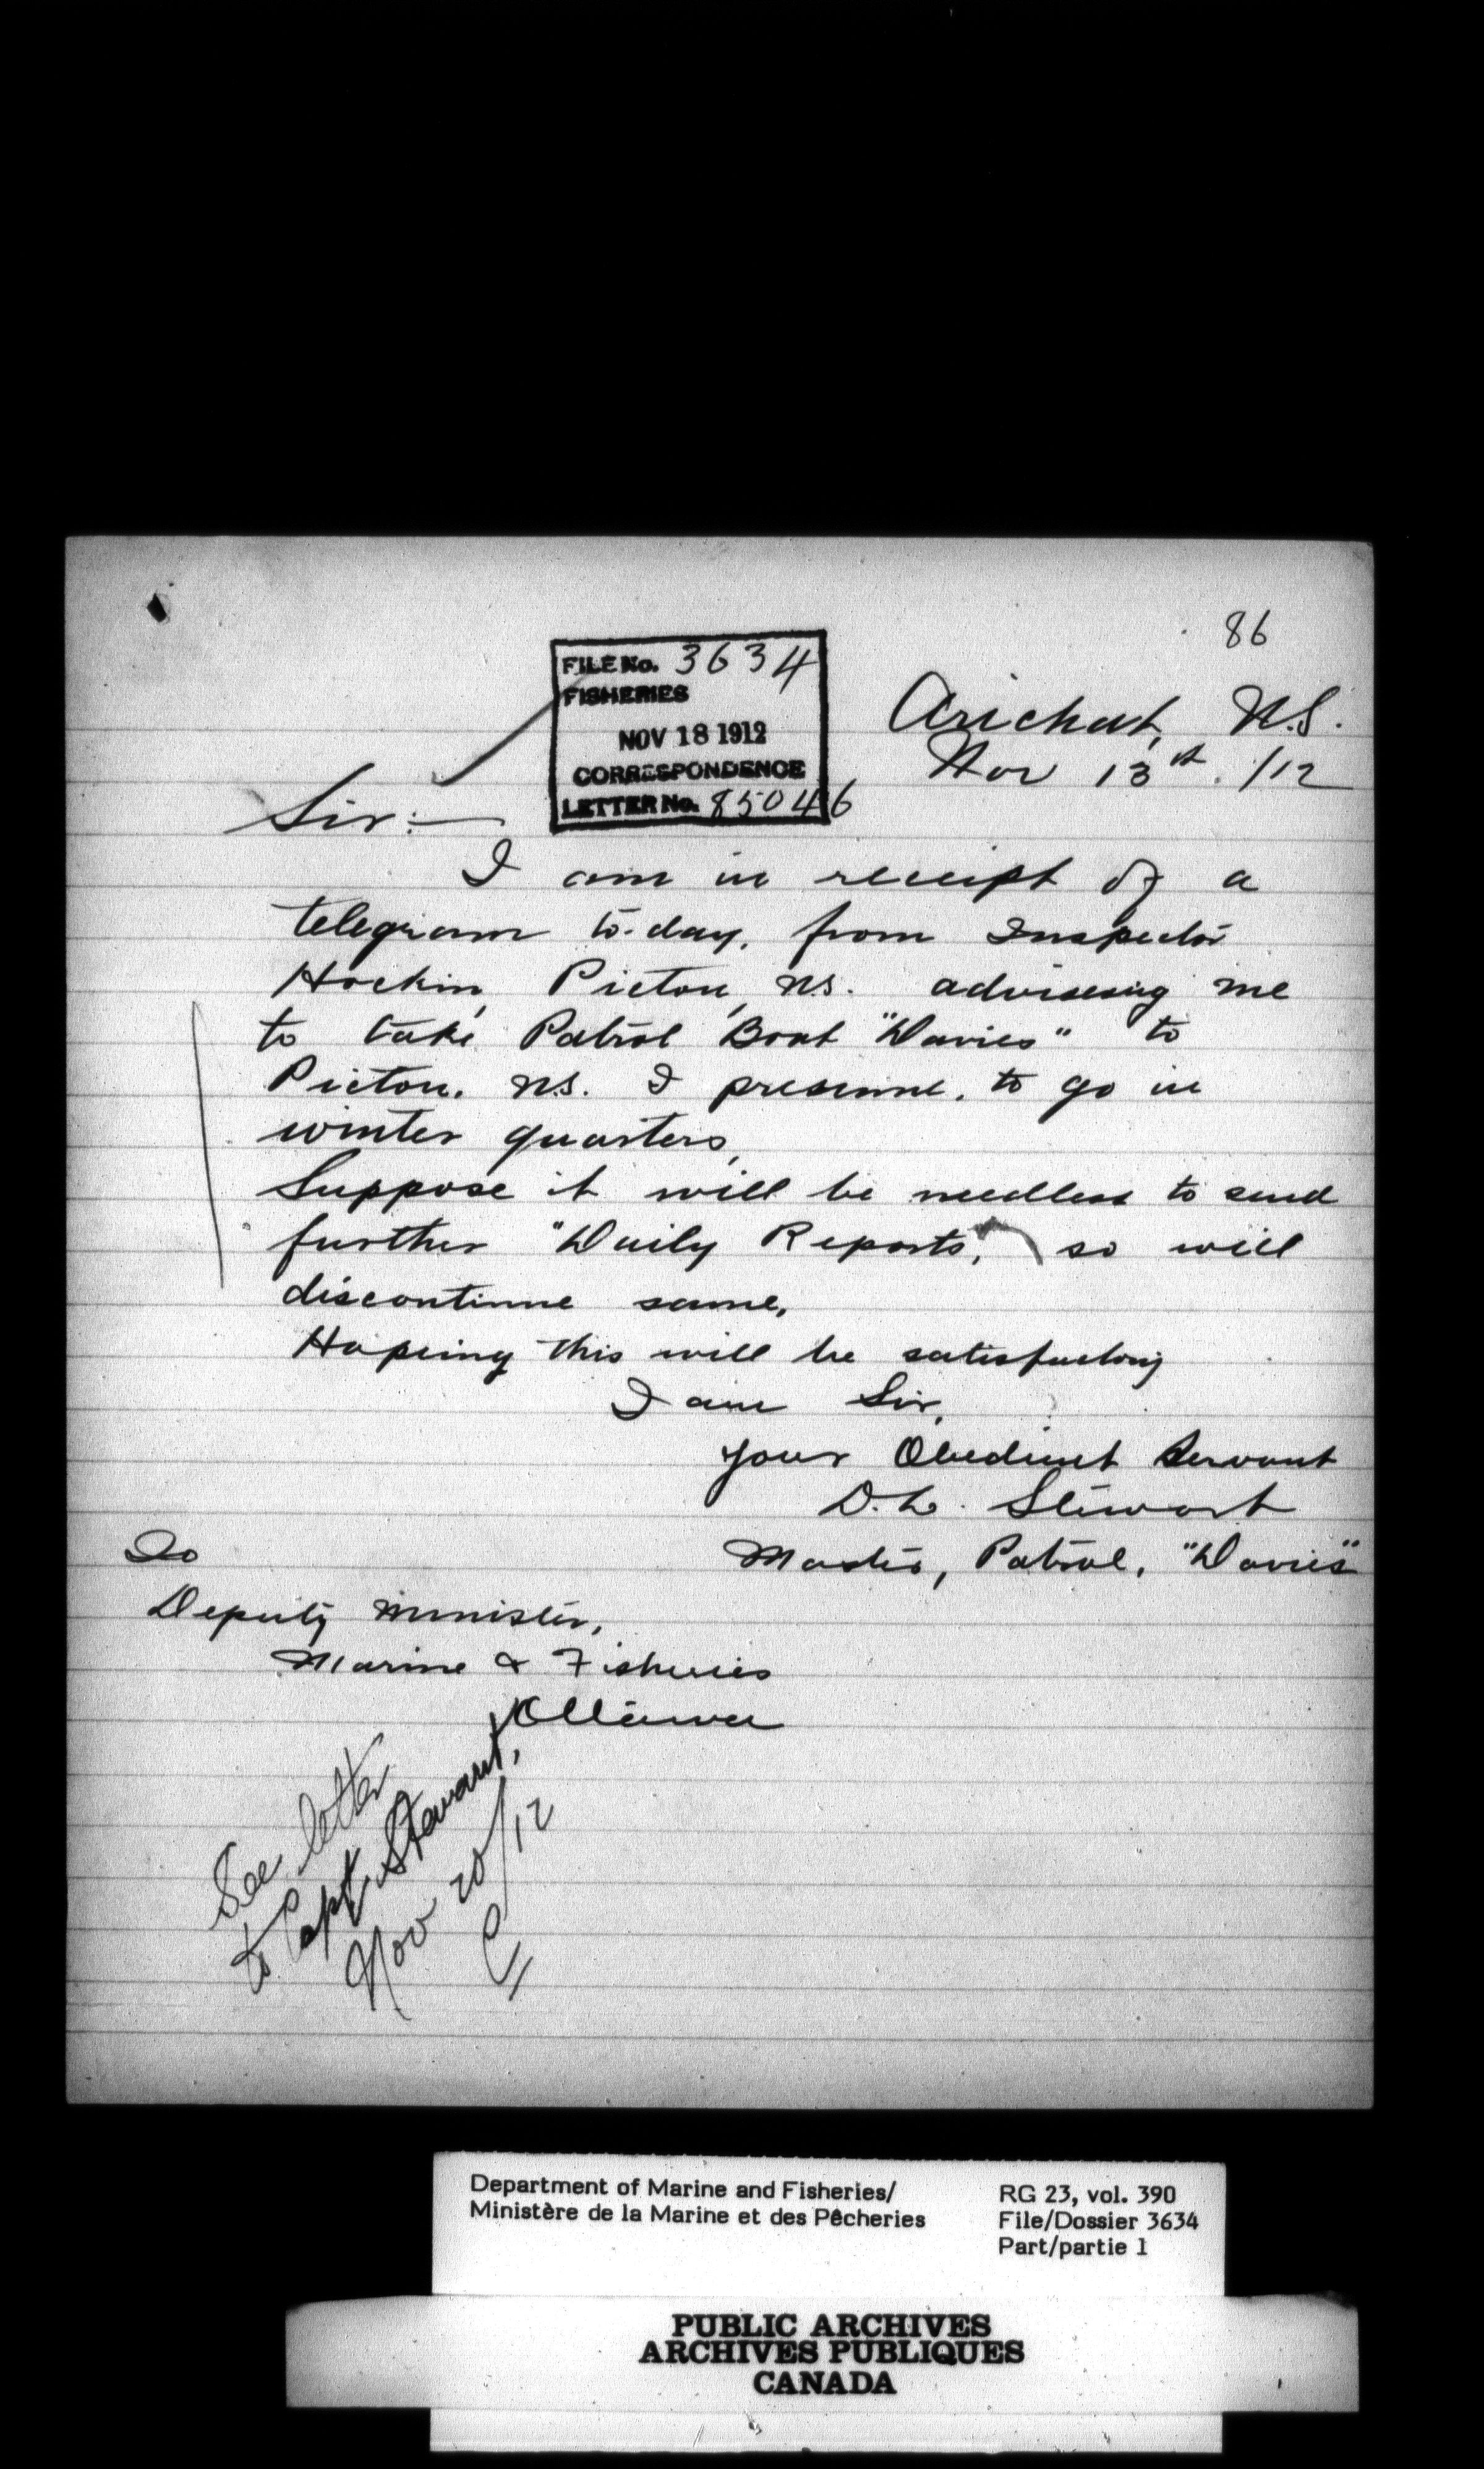 86
FILE No. 3634
FISHERIES
NOV 18 1912
CORRESPONDENCE
LETTER No. 85046
Arichat, N.S.
Nov 13th. /12
Sir:—
I am in receipt of a
telegram to-day, from Inspector
Hockin, Pictou, N.S. advisesing me
to take Patrol Boat "Davies" to
Pictou, N.S. I presume, to go in
winter quarters,
Suppose it will be needless to send
further "Daily Reports," so will
discontinue same,
Hopeing this will be satisfactory
I am Sir,
your Obedient Servant
D. L. Stewart
Master, Patrol, "Davies"
To
Deputy Minister,
Marine & Fisheries
Ottawa
See letter
to Capt. Stewart,
Nov 20/12
Department of Marine and Fisheries/
Ministère de la Marine et des Pêcheries
RG 23, vol. 390
File/Dossier 3634
Part/partie 1
PUBLIC ARCHIVES
ARCHIVES PUBLIQUES
CANADA